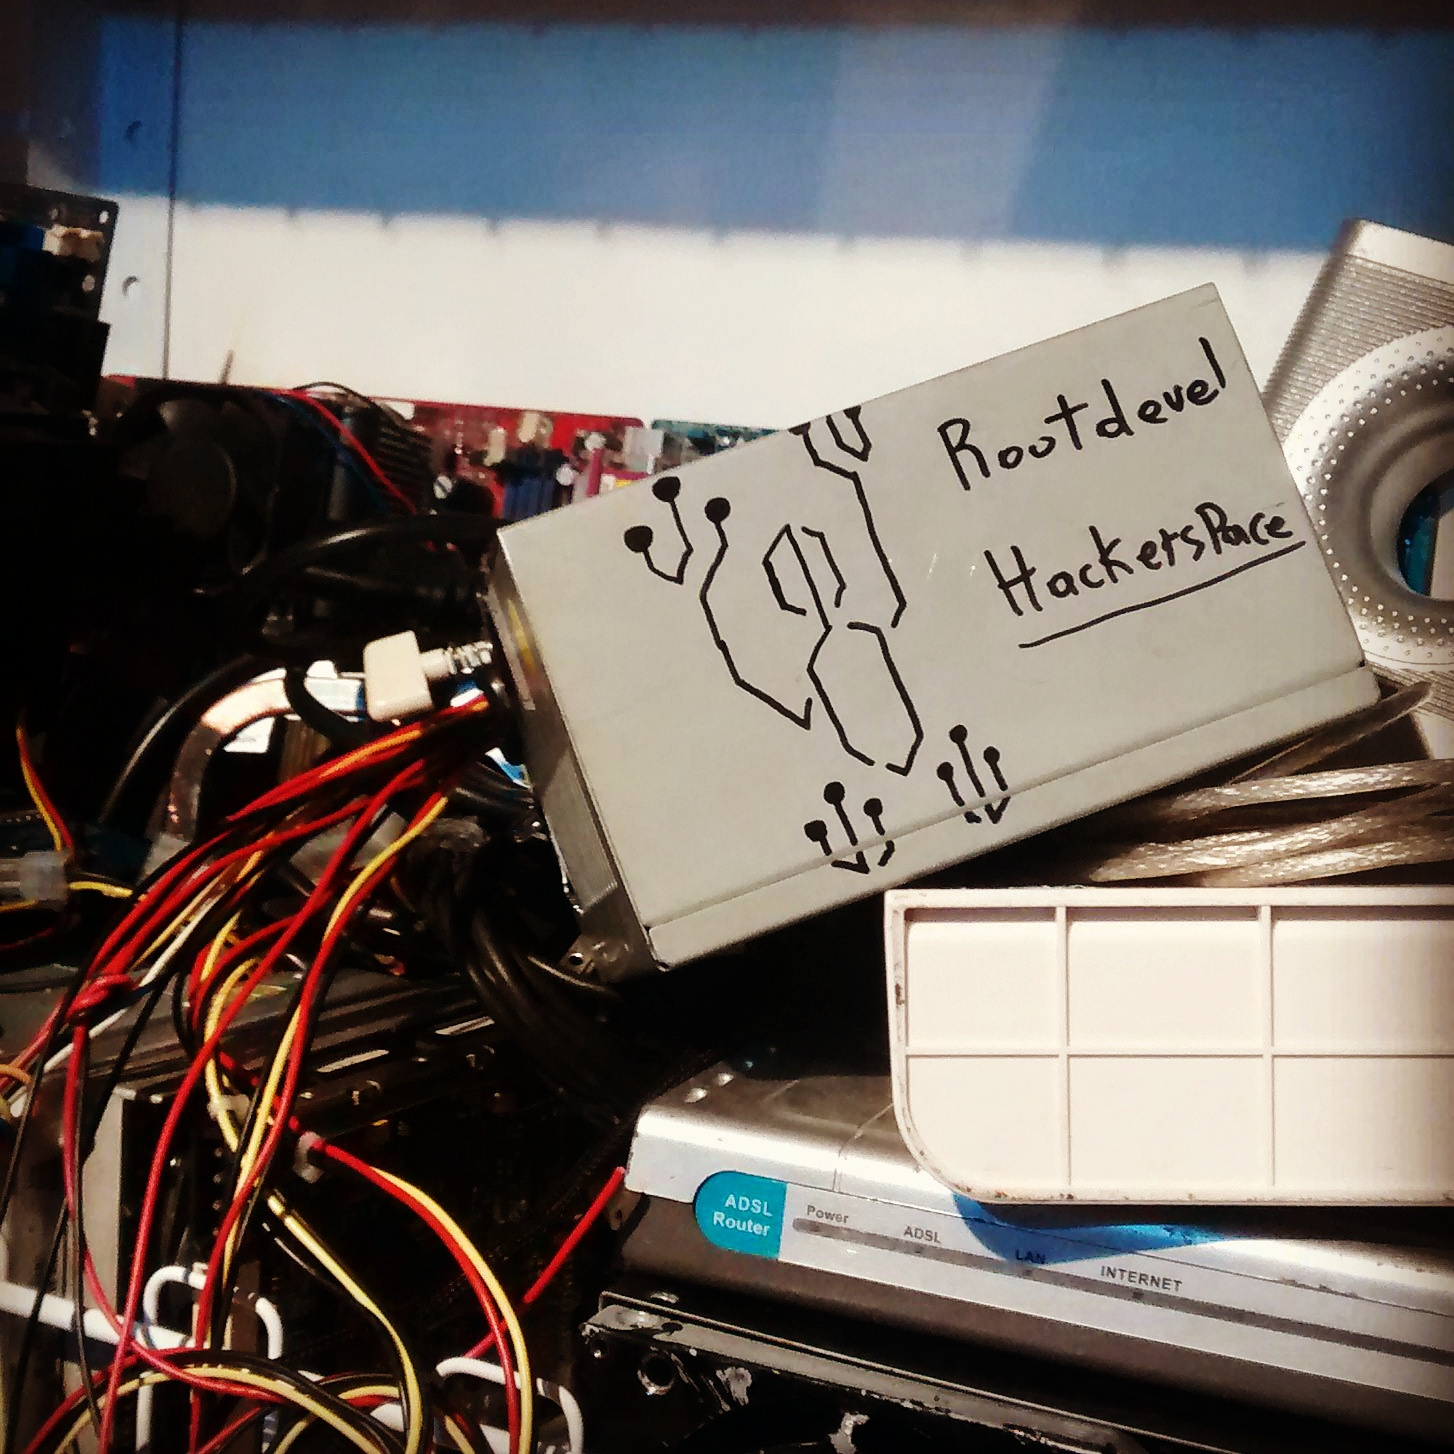 Rootdevel
HackersPace
ADSL
Router
Power
ADSL
LAN
INTERNET